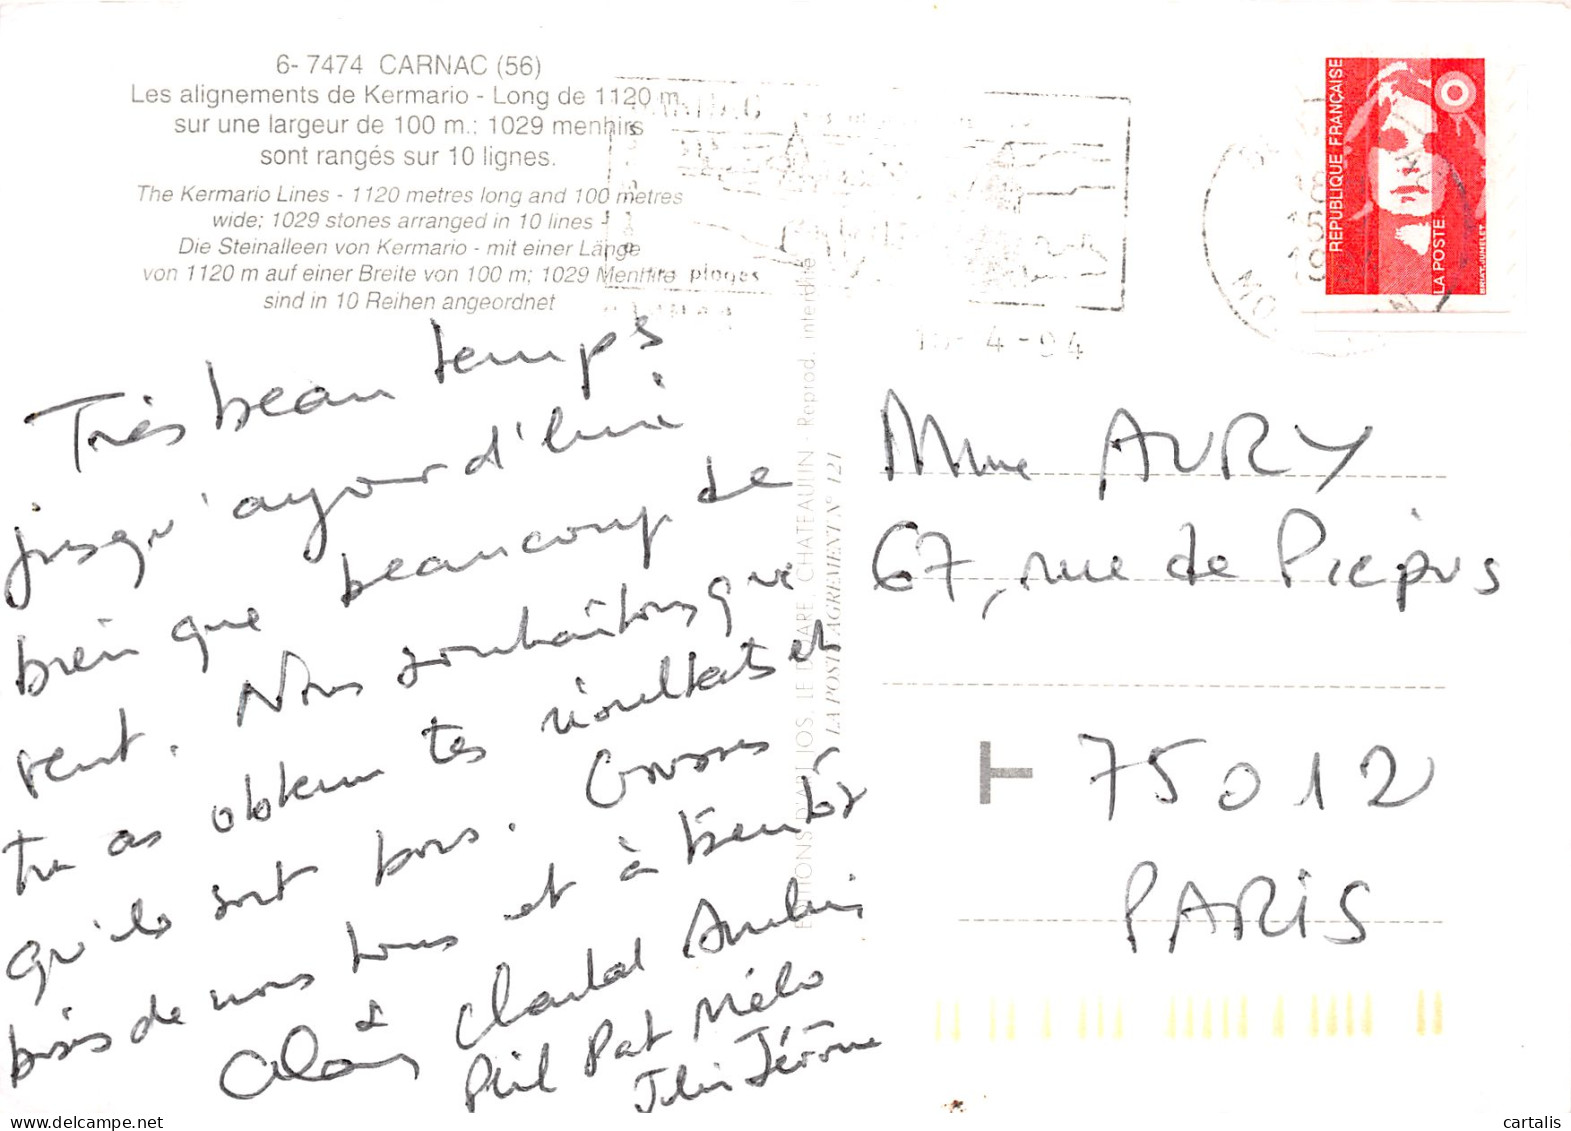 6- 7474 CARNAC (56)
Les alignements de Kermario - Long de 1120 m.
sur une largeur de 100 m.: 1029 menhirs
sont rangés sur 10 lignes.
The Kermario Lines - 1120 metres long and 100 metres
wide; 1029 stones arranged in 10 lines -
Die Steinalleen von Kermario - mit einer Länge
von 1120 m auf einer Breite von 100 m; 1029 Menhire
sind in 10 Reihen angeordnet
Très beau temps
jusqu'aujourd'hui
bien que beaucoup de
vent. Nous souhaitons que
tu as obtenu tes résultats et
qu'ils sont bons. Grosses
bises de nous tous et à bientôt
Alain & Chantal
Phil Pat Mélo
Julien Jérôme
EDITIONS D'ART JOS. LE DOARE, CHATEAULIN - Reprod. interdite
LA POSTE AGREMENT N° 121
CARNAC
ses plages
15-4-94
REPUBLIQUE FRANÇAISE
LA POSTE
BRIAT-JUMELET
Mme AURY
67, rue de Picpus
75012
PARIS
cartalis